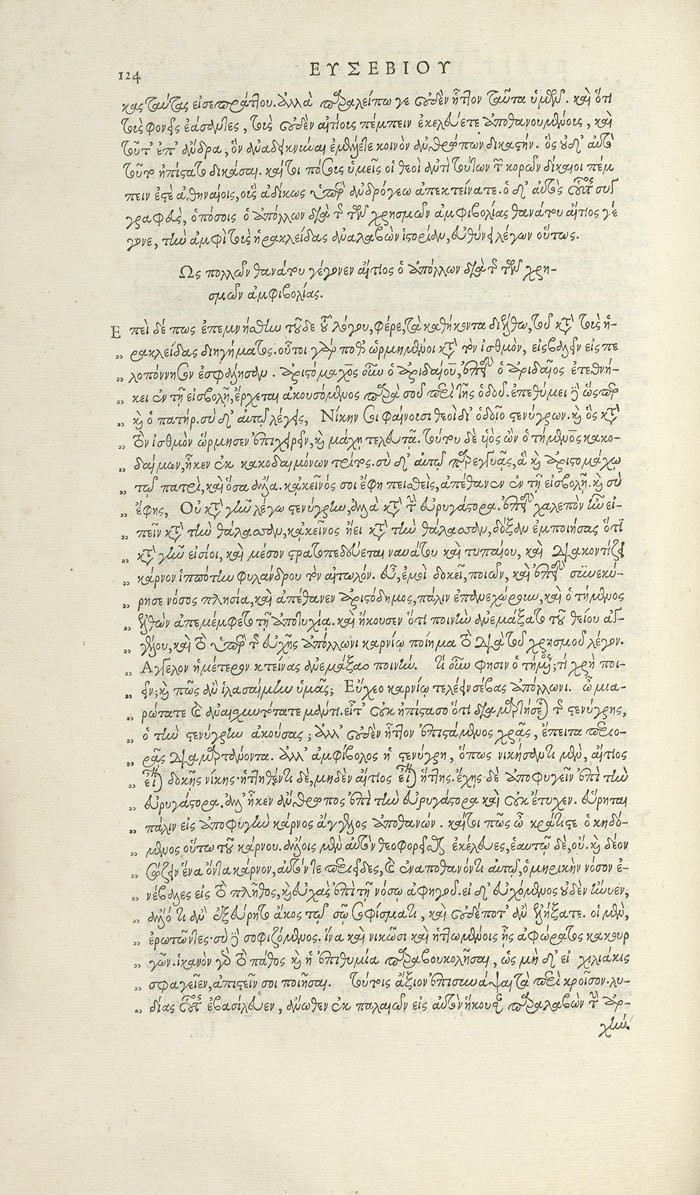 124 ΕΥΣΕΒΙΟΥ
κας ταύτας εἰσεπράτ]ου. ἀλλὰ παραλείπω γε οὐδὲν ἧττον ταῦτα ὑμῖν. καὶ ὅτι
τοὺς φονεῖς ἐάσαντες, τοὺς οὐδὲν αἰτίους πέμπειν ἐκελεύετε ἀποθανουμένους, καὶ
τοῦτ' ἐπ' ἄνδρα, ὃν ἀναδεικνύναι ἐμέλλετε κοινὸν ἀνθρώπων δικαστήν. ὃς οὐδ' αὐτὸ
τοῦτο ἠπίστατο δικάσαι. καίτοι πόσους ὑμεῖς οἱ θεοὶ ἀντὶ τούτων τῶν κόρων δίκαιοι πέμ
πειν ἐστὲ ἀθηναίοις, οὓς ἀδίκως ὑπὲρ ἀνδρόγεω ἀπεκτείνατε. ὁ δ' αὐτὸς οὗτος συγ
γραφεὺς, ὁπόσοις ὁ ἀπόλλων διὰ τῆς τῶν χρησμῶν ἀμφιβολίας θανάτου αἴτιος γέ
γονε, τὴν ἀμφὶ τοὺς ἡρακλείδας ἀναλαβὼν ἱστορίαν, εὐθύνει λέγων οὕτως.
Ὡς πολλῶν θανάτου γέγονεν αἴτιος ὁ ἀπόλλων διὰ τῆς τῶν χρη-
σμῶν ἀμφιβολίας.
Ἐπεὶ δέ πως ἐπεμνήσθην τοῦδε τοῦ λόγου, φέρε, τὰ καθήκοντα διέλθω, τοῦ κατὰ τοὺς ἡ-
„ ρακλείδας διηγήματος. οὗτοι γάρ ποθ' ὡρμημένοι κατὰ τὸν ἰσθμὸν, εἰσβαλεῖν εἰς πε
„ λοπόννησον ἐσφάλησαν. ἀριστόμαχος οὖν ὁ ἀριδαίου, ἐπεὶ ὁ ἀριδαῖος ἐτεθνή-
„ κει ἐν τῇ εἰσβολῇ, ἔρχεται ἀκουσόμενος παρὰ σοῦ περὶ τῆς ὁδοῦ. ἐπεθύμει γὰρ ὥσπερ
„ καὶ ὁ πατήρ. σὺ δ' αὐτῷ λέγεις, Νίκην σοι φαίνουσι θεοὶ δι' ὁδοῖο στενύγρων. καὶ ὃς κατὰ
„ τὸν ἰσθμὸν ὥρμησεν ἐπιχειρεῖν, καὶ μάχῃ τελευτᾷ. τούτου δὲ υἱὸς ὢν ὁ τήμενος κακο-
„ δαίμων, ἧκεν ἐκ κακοδαιμόνων τρίτος. σὺ δ' αὐτῷ παρεγγυᾷς, ἃ καὶ ἀριστομάχῳ
„ τῷ πατρὶ, καὶ ὅσα ἄλλα. κἀκεῖνός σοι ἔφη πεισθεὶς, ἀπέθανεν ἐν τῇ εἰσβολῇ. καὶ σὺ
„ ἔφης, Οὐ κατὰ γῆν λέγω στενύγρην, ἀλλὰ κατὰ τὴν εὐρυγάστορα. ἐπεὶ χαλεπὸν ἦν εἰ-
„ πεῖν κατὰ τὴν θάλασσαν, κἀκεῖνος ᾔει κατὰ τὴν θάλασσαν, δόξαν ἐμποιήσας ὅτι
„ κατὰ γῆν εἰσίοι, καὶ μέσον στρατοπεδεύεται ναυπάκτου καὶ τυπαίου, καὶ διακοντίζει
„ κάρνον ἱππότην φυλάνδρου τὸν αἰτωλόν. εὖ, ἐμοὶ δοκεῖ, ποιῶν, καὶ ἐπεὶ συνεκύ-
„ ρησε νόσος πλησία, καὶ ἀπέθανεν ἀριστόδημος, πάλιν ἐπανεχώρησαν, καὶ ὁ τήμενος
„ ἐλθὼν ἀπεμέμφετο τῇ ἀποτυχίᾳ. καὶ ἤκουσεν ὅτι ποινὴν ἀνεμάξατο τοῦ θείου ἀγ-
„ γέλου, καὶ τὸ ὑπὲρ τῆς εὐχῆς ἀπόλλωνι καρνίῳ ποίημα τὸ διὰ τοῦ χρησμοῦ λέγον.
„ Ἄγγελον ἡμέτερον κτείνας ἀνεμάξαο ποινήν. Τί οὖν φησιν ὁ τήμενος; τί χρὴ ποι-
„ εῖν; καὶ πῶς ἂν ἱλασαίμην ὑμᾶς; Εὔχεο καρνίῳ τελέειν σέβας ἀπόλλωνι. ὦ μια-
„ ρώτατε καὶ ἀναισχυντότατε μάντι. εἶτ' οὐκ ἠπίστασο ὅτι διαμαρτήσεται τῆς στενύγρης,
„ ὁ τὴν στενύγρην ἀκούσας; ἀλλ' οὐδὲν ἧττον ἐπιστάμενος χρᾷς, ἔπειτα περιο-
„ ρᾷς διαμαρτάνοντα. ἀλλ' ἀμφίβολος ἡ στενύγρη, ὅπως νικήσαντι μὲν, αἴτιος
„ εἶναι δοκῇς νίκης· ἡττηθέντι δὲ, μηδὲν αἴτιος εἶναι ἥττης. ἔχῃς δὲ ἀποφυγεῖν ἐπὶ τὴν
„ εὐρυγάστορα. ἀλλ' ἧκεν ἄνθρωπος ἐπὶ τὴν εὐρυγάστορα καὶ οὐκ ἔτυχεν. εὕρηται
„ πάλιν εἰς ἀποφυγὴν κάρνος ἄγγελος ἀποθανών. καίτοι πῶς ὦ κράτιστε ὁ κηδό-
„ μενος οὕτω τοῦ κάρνου. ἄλλοις μὲν αὐτὸν θεοφορεῖσθαι ἐκέλευες, ἑαυτῷ δὲ, οὔ. καὶ δέον
„ σώζειν ἕνα ὄντα κάρνον, αὐτόν τε περιεῖδες, καὶ ἐναποθανόντι αὐτῷ, ὁμηρικὴν νόσον ἐ-
„ νέβαλες εἰς τὸ πλῆθος, καὶ εὐχὰς ἐπὶ τῇ νόσῳ ἀφηγοῦ. εἰ δ' εὐχόμενος οὐδὲν ἤνυεν,
„ ἄλλό τι ἂν ἐξεύρητο ἄκος τῷ σῷ σοφίσματι, καὶ οὐδέποτ' ἂν ἐλήξατε. οἱ μὲν,
„ ἐρωτῶντες· σὺ δὲ σοφιζόμενος. ἵνα καὶ νικῶσι καὶ ἡττωμένοις ᾖς ἀφώρατος κακουρ
„ γῶν. ἱκανὸν γὰρ τὸ πάθος καὶ ἡ ἐπιθυμία παραβουκολῆσαι, ὡς μὴ δ' εἰ χιλιάκις
„ σφαγεῖεν, ἀπιστεῖν σοι ποιῆσαι. Τούτοις ἄξιον ἐπισυνάψαι τὰ περὶ κροῖσον. λυ-
„ δίας οὗτος ἐβασίλευεν, ἄνωθεν ἐκ παλαιῶν εἰς αὐτὸν ἡκούσης παραλαβὼν τῆς ἀρ-
χῆς.